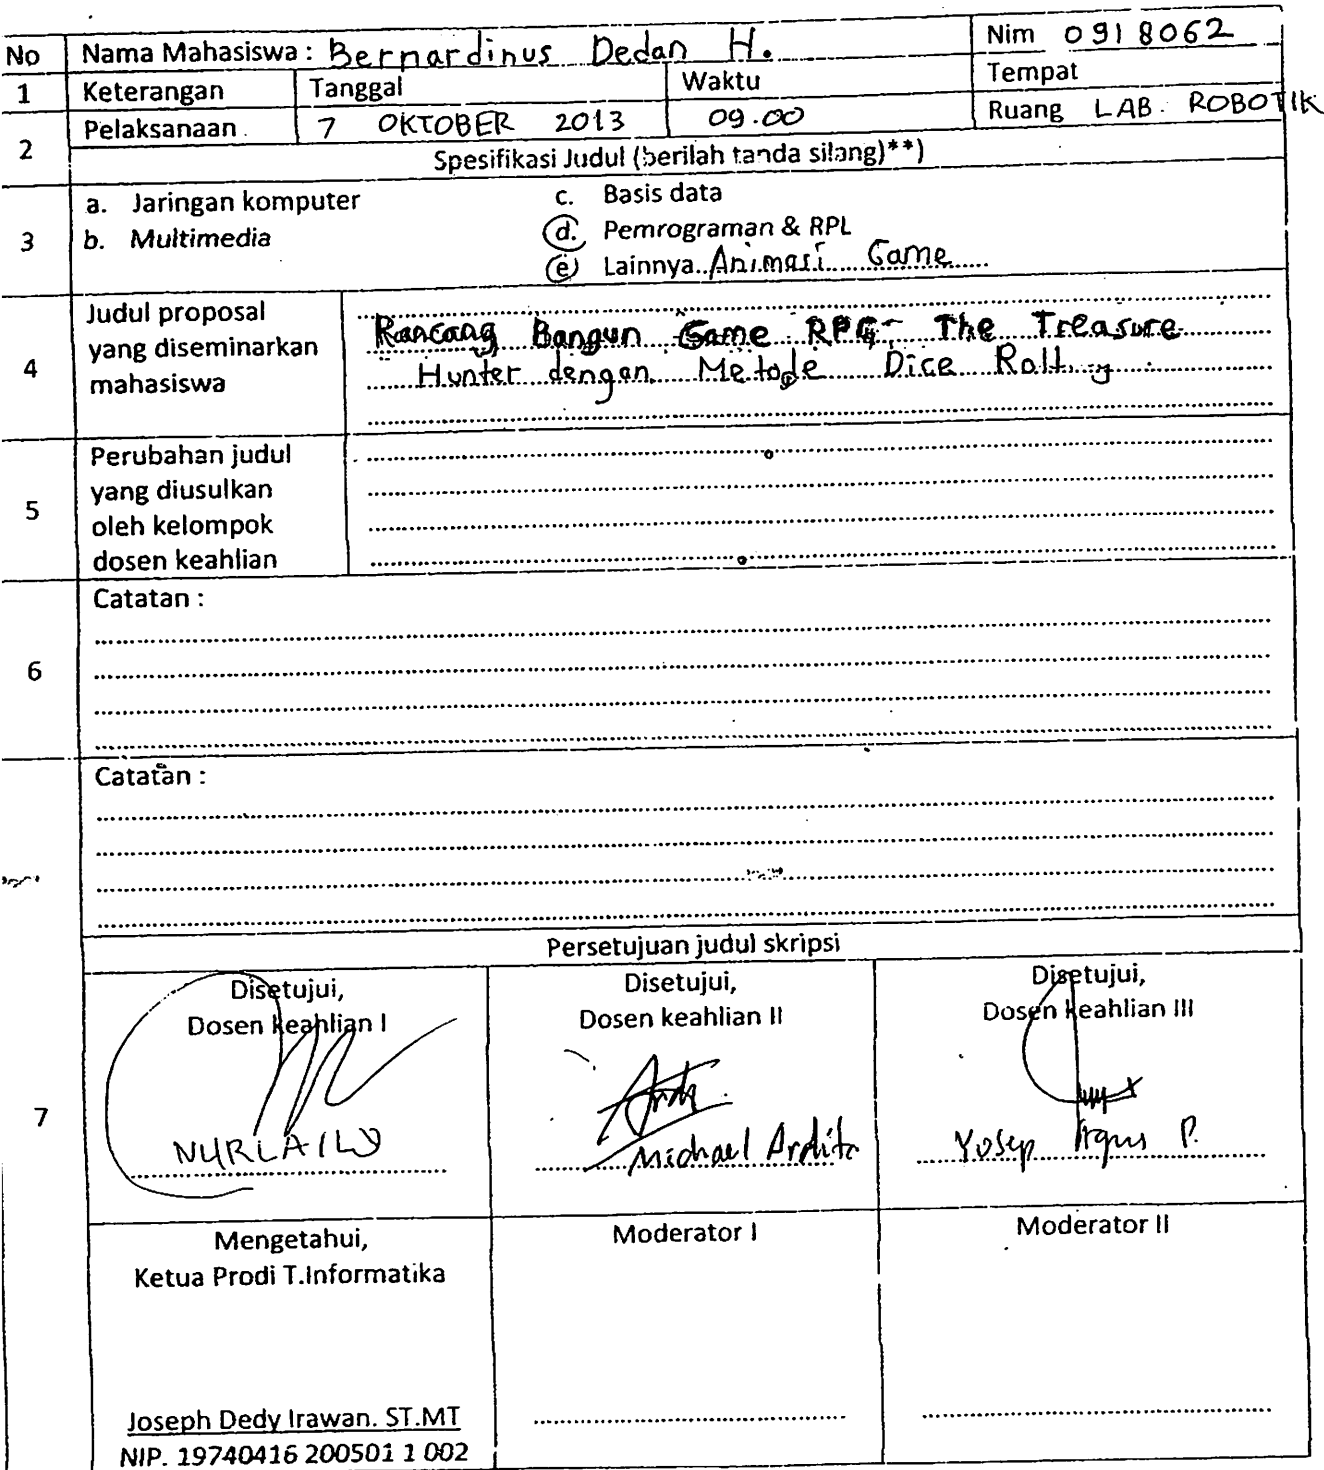 No Nama Mahasiswa : Bernardinus Dedan H. Nim 0918062
1 Keterangan Tanggal Waktu Tempat
2 Pelaksanaan 7 OKTOBER 2013 09.00 Ruang LAB. ROBOTIK
Spesifikasi Judul (berilah tanda silang)**)
3
a. Jaringan komputer
b. Multimedia
c. Basis data
d. Pemrograman & RPL
e) Lainnya..Animasi Game
4
Judul proposal
yang diseminarkan
mahasiswa
Rancang Bangun Game RPG - The Treasure
Hunter dengan Metode Dice Rolling
5
Perubahan judul
yang diusulkan
oleh kelompok
dosen keahlian
6
Catatan :
Catatan :
Persetujuan judul skripsi
7
Disetujui,
Dosen keahlian I
NURLAILY
Disetujui,
Dosen keahlian II
Michael Ardita
Disetujui,
Dosen keahlian III
Yosep Agus P.
Mengetahui,
Ketua Prodi T.Informatika
Joseph Dedy Irawan. ST.MT
NIP. 19740416 200501 1 002
Moderator I
Moderator II